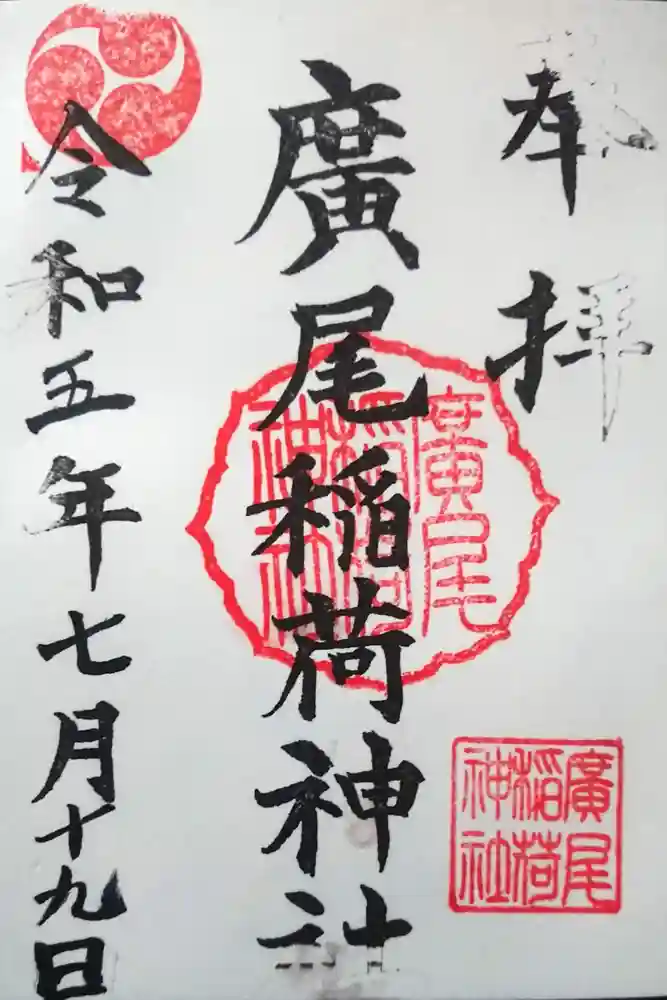 奉拝
廣尾稲荷神社
令和五年七月十九日
廣尾
稲荷
神社
廣尾
稲荷
神社